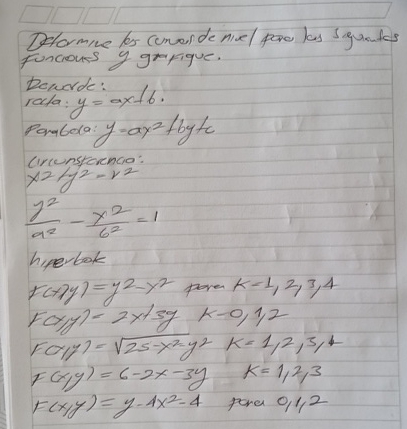 Determine las curvas de nivel para las siguientes
funciones y grafique.
Recuerde:
recta: y = ax+b.
Parabola: y=ax²+by+c
Circunsferencia:
x2+y²=r²
y²/a² - x²/b² = 1
hiperbola
F(x,y)= y²-x² para K=1,2,3,4
F(x,y)= 2x+3y K=0,1,2
F(x,y)= √25-x²-y² K=1,2,3,4
F(x,y)= 6-2x-3y K=1,2,3
F(x,y)= y-4x²-4 para 0,1,2